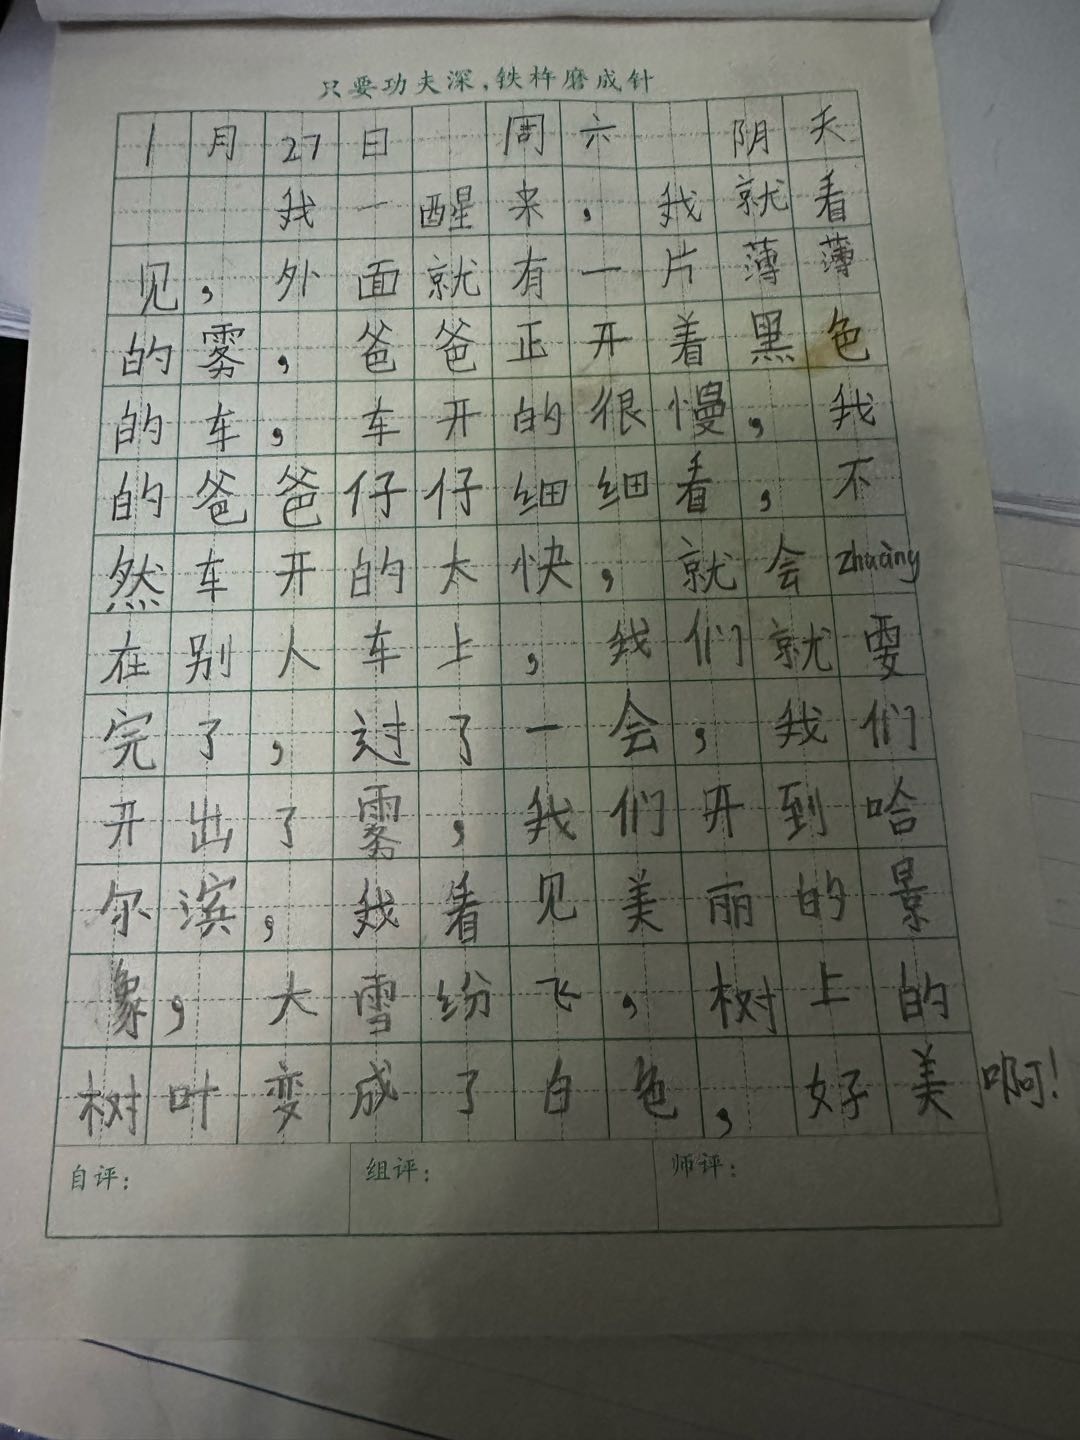 只要功夫深,铁杵磨成针
1月27日 周六 阴天
我一醒来,我就看
见,外面就有一片薄薄
的雾,爸爸正开着黑色
的车,车开的很慢,我
的爸爸仔仔细细看,不
然车开的太快,就会zhuàng
在别人车上,我们就要
完了,过了一会,我们
开出了雾,我们开到哈
尔滨,我看见美丽的景
象,大雪纷飞,树上的
树叶变成了白色,好美啊!
自评: 组评: 师评: